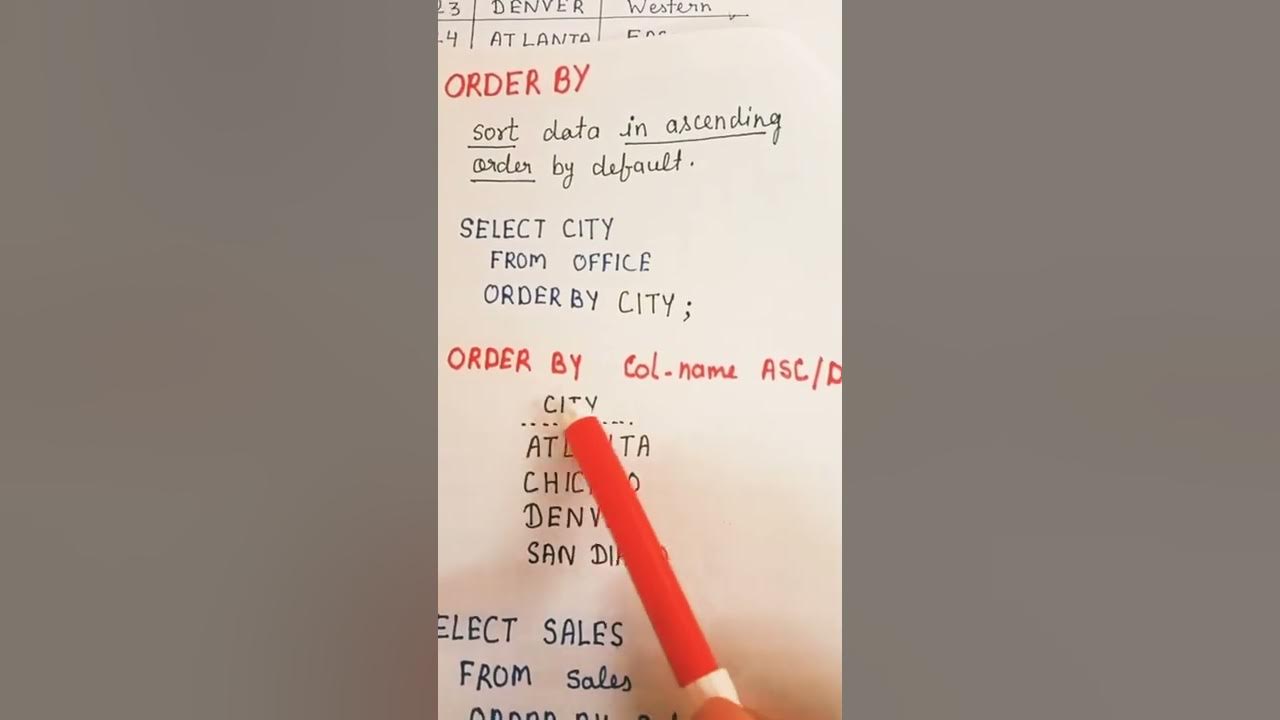 23 DENVER Western
4 ATLANTA
ORDER BY
sort data in ascending
order by default.
SELECT CITY
FROM OFFICE
ORDER BY CITY;
ORDER BY Col-name ASC/D
CITY
DENV
SAN
ELECT SALES
FROM Sales
ORDER BY